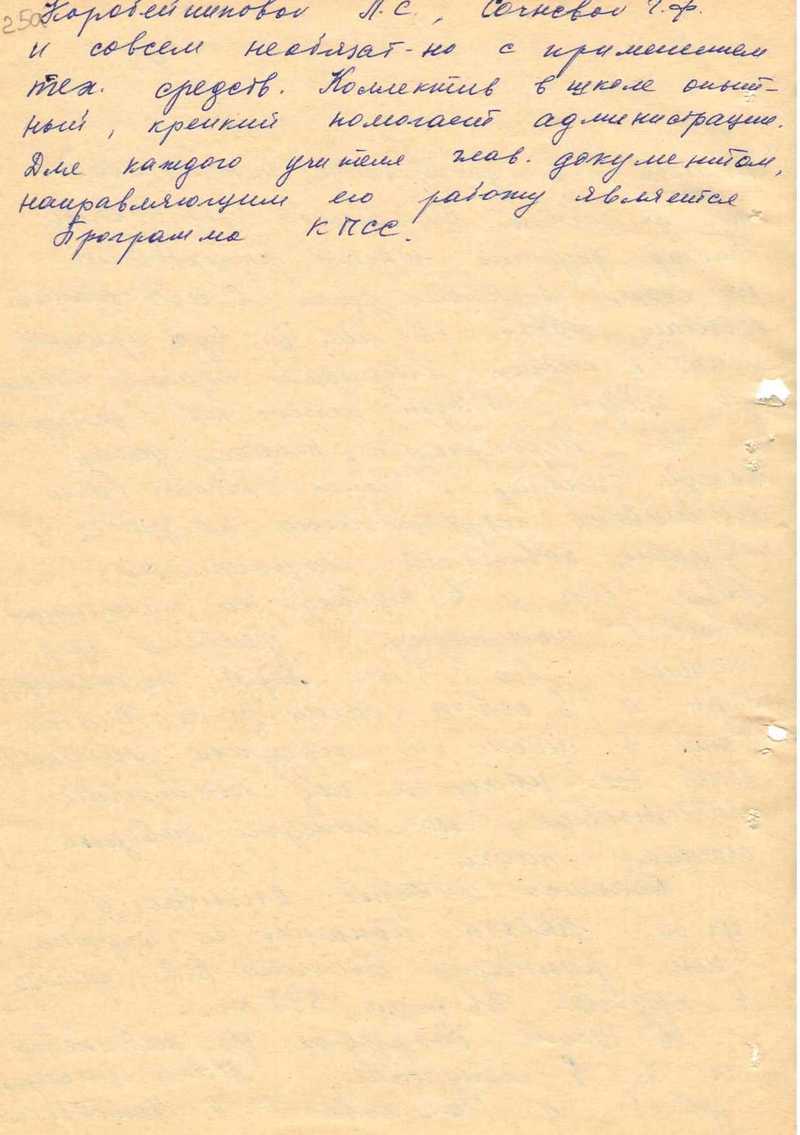 250
Коробейниковой Л.С., Сочневой Г.Ф.
и совсем необязат-но с применением
тех. средств. Коллектив в школе опыт-
ный, крепкий помогает администрации.
Для каждого учителя глав. документом,
направляющим его работу является
Программа КПСС.